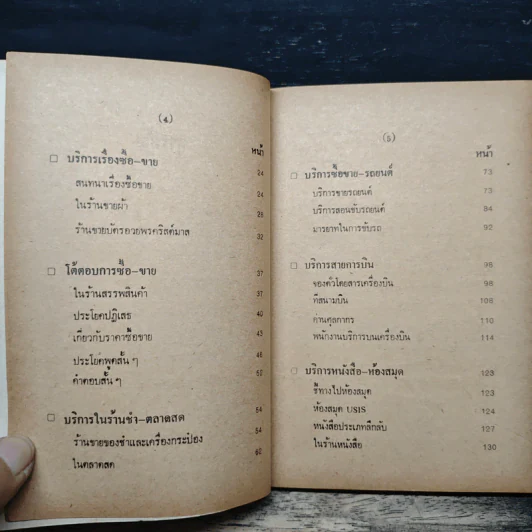 (4)
หน้า
□ บริการเรื่องซื้อ-ขาย 24
สนทนาเรื่องซื้อขาย 24
ในร้านขายผ้า 28
ร้านขายบัตรอวยพรคริสต์มาส 32
□ โต้ตอบการซื้อ-ขาย 37
ในร้านสรรพสินค้า 37
ประโยคปฏิเสธ 40
เกี่ยวกับราคาซื้อขาย 43
ประโยคพูดสั้น ๆ 46
คำตอบสั้น ๆ 52
□ บริการในร้านชำ-ตลาดสด 54
ร้านขายของชำและเครื่องกระป๋อง 54
ในตลาดสด 62
(5)
หน้า
□ บริการซื้อขาย-รถยนต์ 73
บริการขายรถยนต์ 73
บริการสอนขับรถยนต์ 84
มารยาทในการขับรถ 92
□ บริการสายการบิน 98
จองตั๋วโดยสารเครื่องบิน 98
ที่สนามบิน 106
ด่านศุลกากร 110
พนักงานบริการบนเครื่องบิน 114
□ บริการหนังสือ-ห้องสมุด 123
ชี้ทางไปห้องสมุด 123
ห้องสมุด USIS 124
หนังสือประเภทลึกลับ 127
ในร้านหนังสือ 130